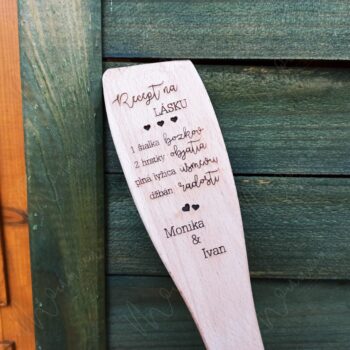 Recept na
LÁSKU
1 šialka bozkov
2 hrstky objatia
plná lyžica úsmevu
džbán radosti
Monika
&
Ivan